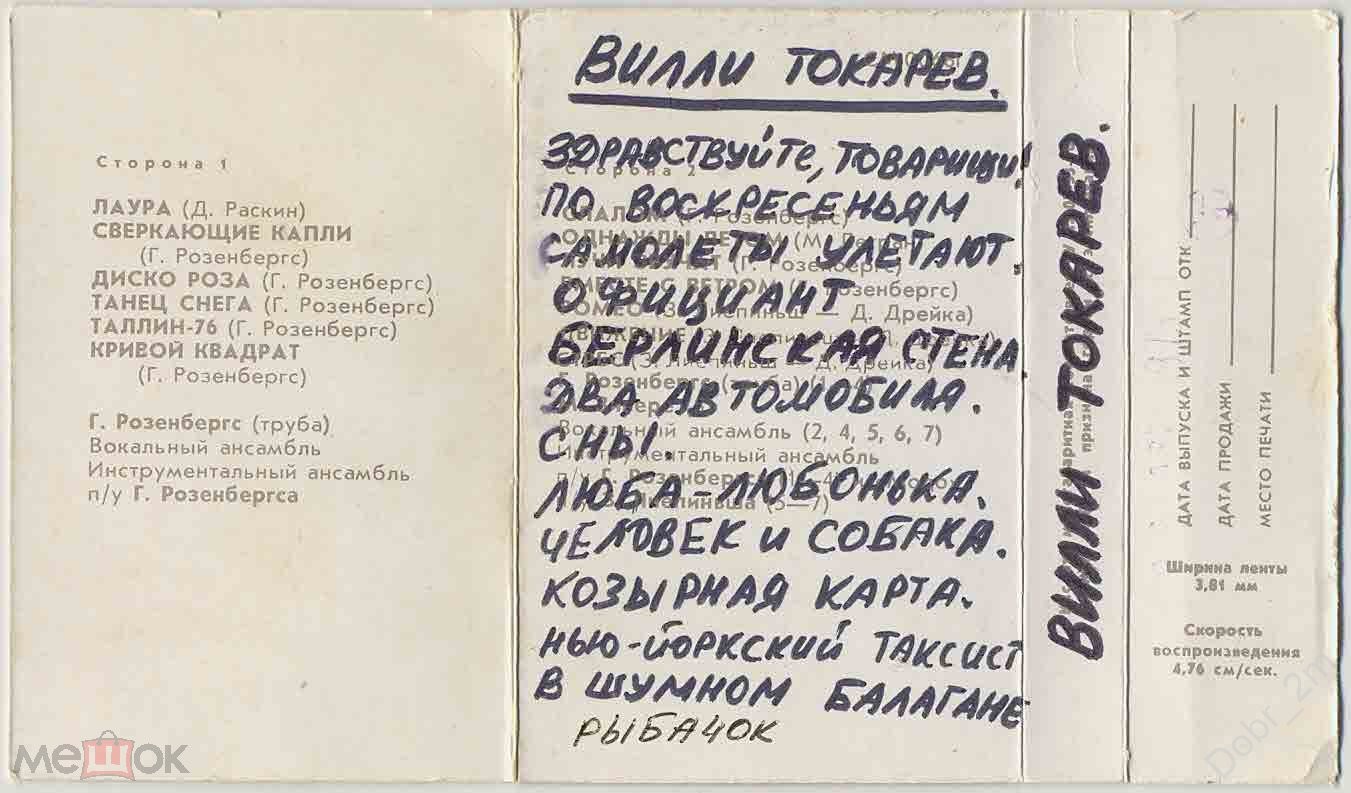 Сторона 1
ЛАУРА (Д. Раскин)
СВЕРКАЮЩИЕ КАПЛИ
(Г. Розенбергс)
ДИСКО РОЗА (Г. Розенбергс)
ТАНЕЦ СНЕГА (Г. Розенбергс)
ТАЛЛИН-76 (Г. Розенбергс)
КРИВОЙ КВАДРАТ
(Г. Розенбергс)
Г. Розенбергс (труба)
Вокальный ансамбль
Инструментальный ансамбль
п/у Г. Розенбергса
ВИЛЛИ ТОКАРЕВ.
ЗДРАВСТВУЙТЕ, ТОВАРИЩИ!
ПО ВОСКРЕСЕНЬЯМ
САМОЛЕТЫ УЛЕТАЮТ.
ОФИЦИАНТ
БЕРЛИНСКАЯ СТЕНА
ДВА АВТОМОБИЛЯ.
СНЫ.
ЛЮБА-ЛЮБОНЬКА.
ЧЕЛОВЕК И СОБАКА.
КОЗЫРНАЯ КАРТА.
НЬЮ-ЙОРКСКИЙ ТАКСИСТ
В ШУМНОМ БАЛАГАНЕ
РЫБАЧОК
Сторона 2
ОДНАЖДЫ ЛЕТОМ (М.
ВМЕСТЕ С ВЕТРОМ
Розенбергс)
Д. Дрейка)
ДВИЖЕНИЕ
Вокальный ансамбль (2, 4, 5, 6, 7)
Инструментальный ансамбль
п/у Г. Розенбергса
ВИЛЛИ ТОКАРЕВ.
ДАТА ВЫПУСКА И ШТАМП ОТК
ДАТА ПРОДАЖИ
МЕСТО ПЕЧАТИ
Ширина ленты
3,81 мм
Скорость
воспроизведения
4,76 см/сек.
мешок
Dobr_2m